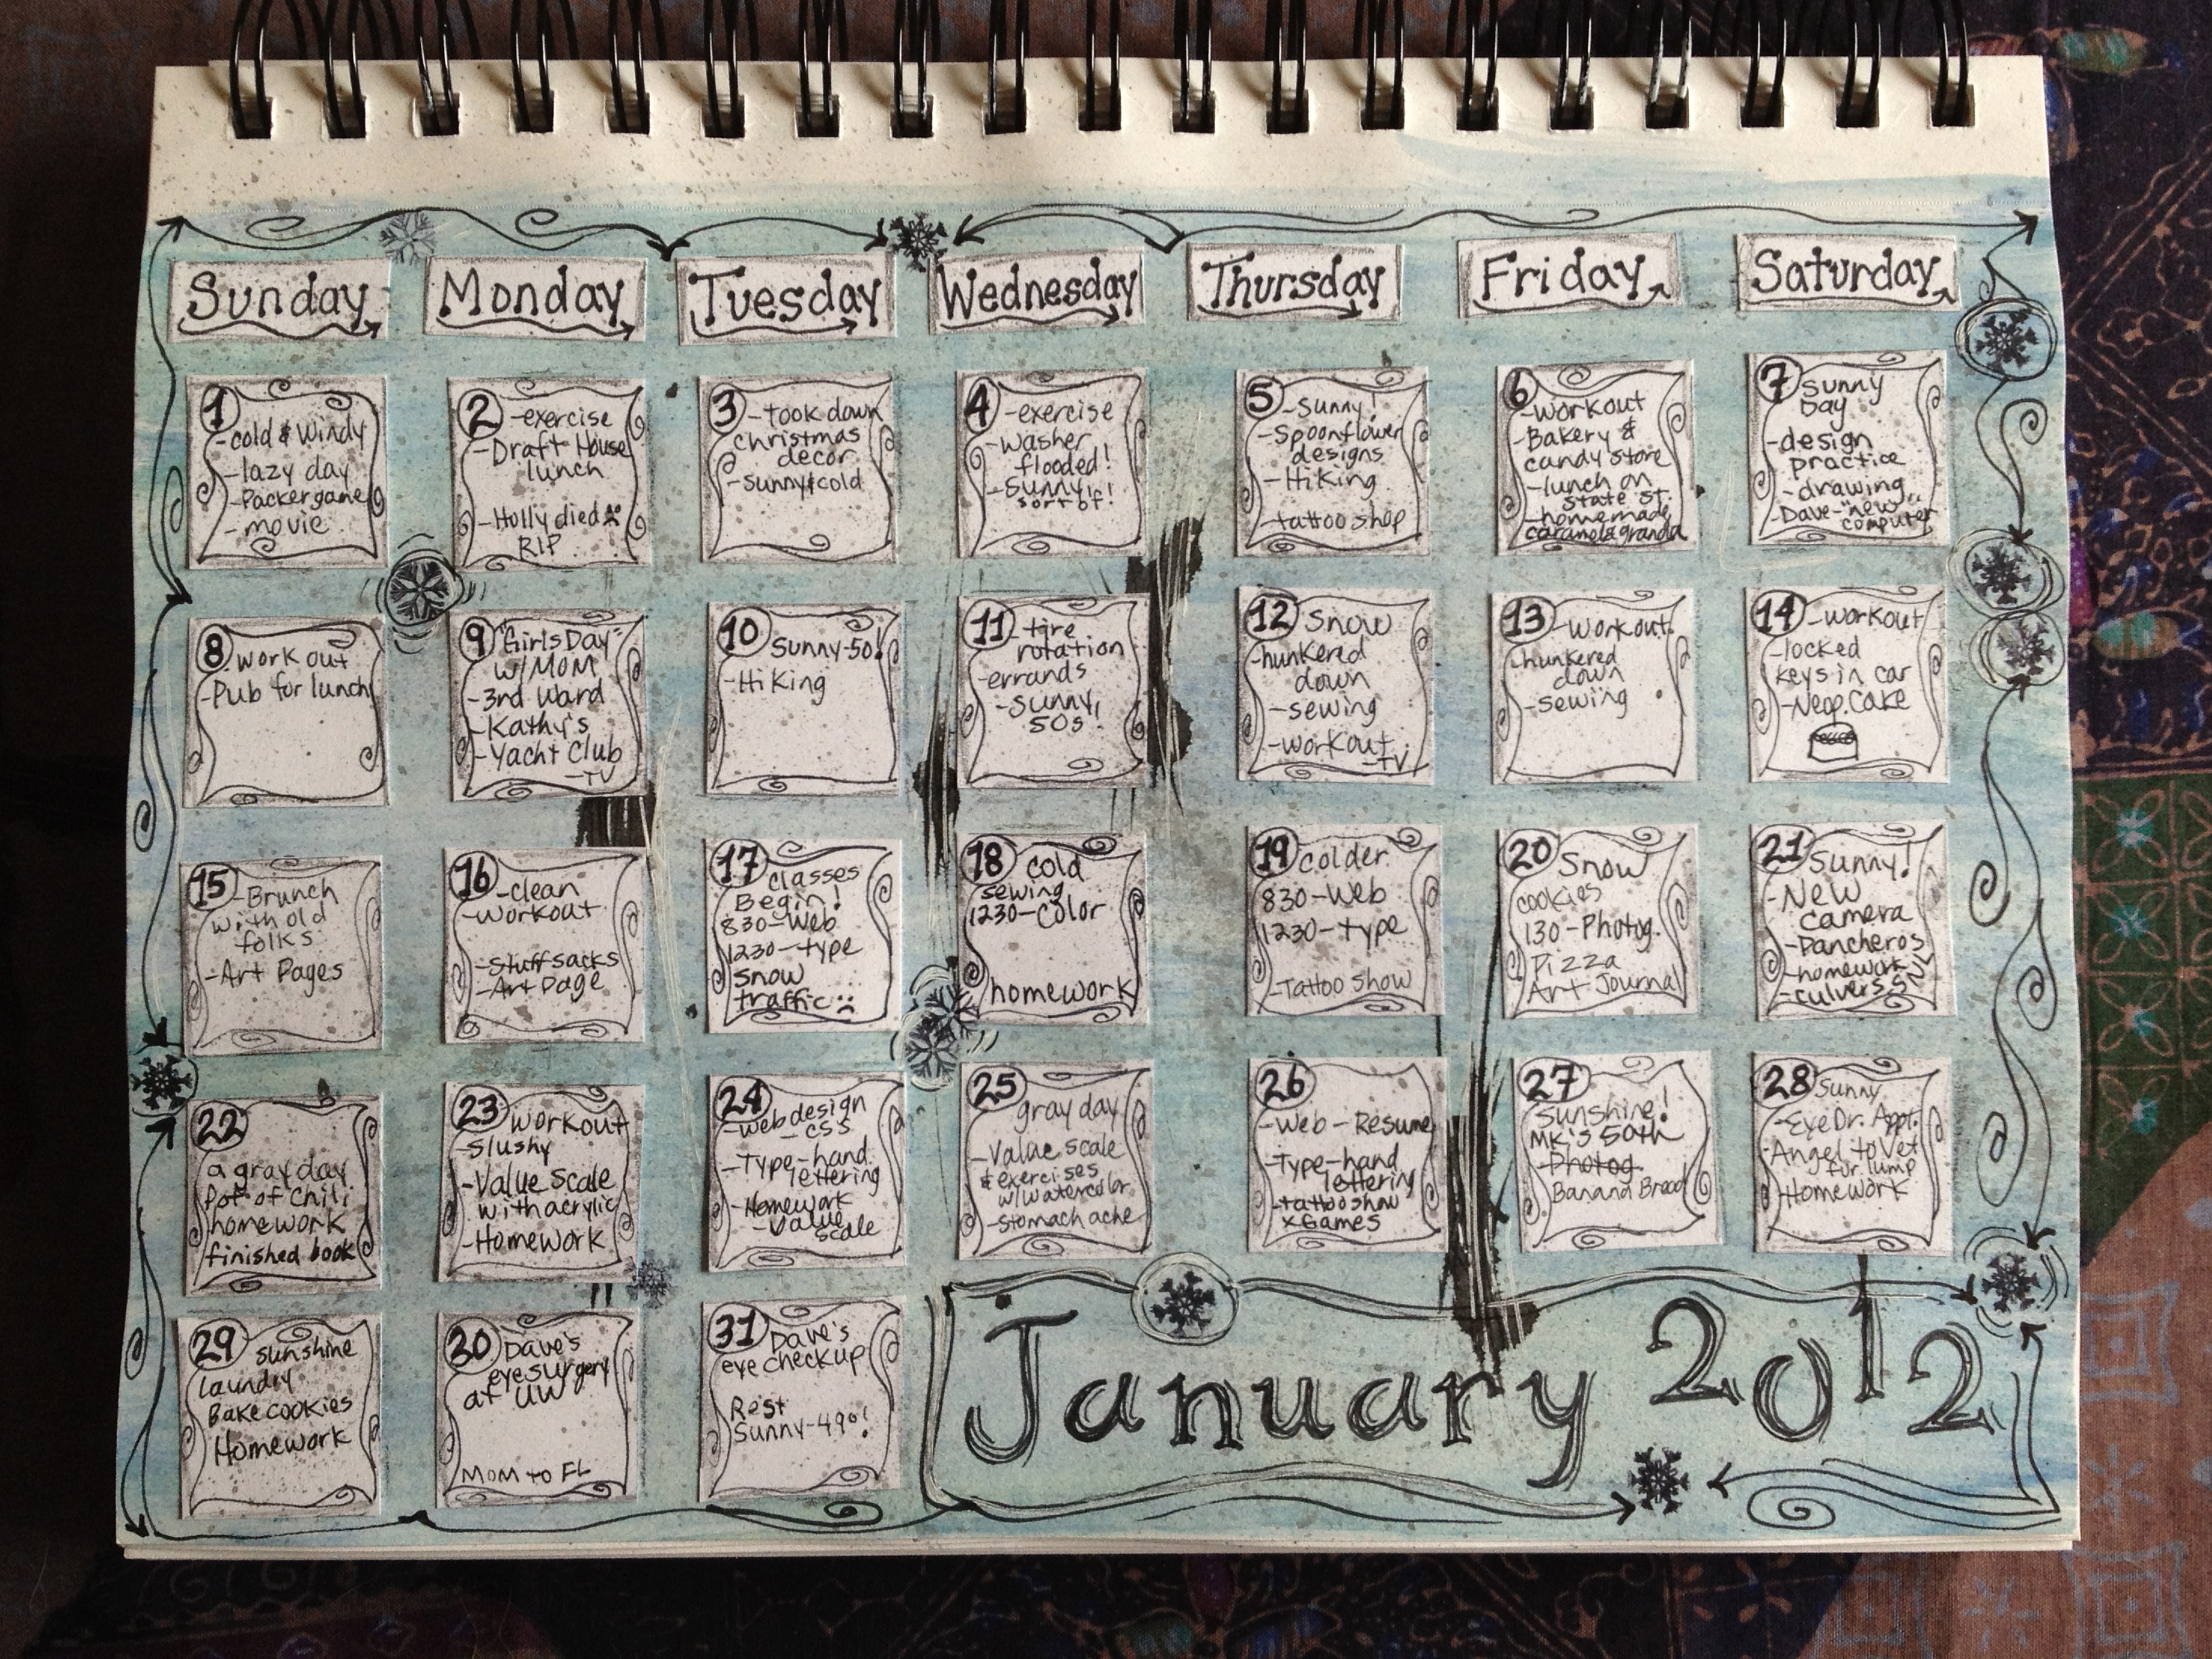 Sunday Monday Tuesday Wednesday Thursday Friday Saturday
1
-cold & windy
-lazy day
-Packer game
-movie
2 -exercise
-Draft House
lunch
-Holly died
RIP
3 -took down
christmas
decor
-sunny & cold
4 -exercise
-washer
flooded!
-sunny!
sort of!
5 -sunny!
-Spoonflower
designs
-Hiking
-tattoo shop
6
-workout
-Bakery &
candy store
-lunch on
state st.
-homemade
caramel & granola
7 sunny
Day
-design
practice
-drawing
-Dave-"new"
computer
8 work out
-Pub for lunch
9 "Girls Day"
w/MOM
-3rd Ward
-Kathy's
-Yacht Club
-TV
10 Sunny-50!
-Hiking
11 -tire
rotation
-errands
-sunny,
50s!
12 Snow
-hunkered
down
-sewing
-workout
-TV
13 -workout
-hunkered
down
-sewing
14 -workout
-locked
keys in car
-Neop. Cake
15 -Brunch
with old
folks
-Art Pages
16 -clean
-workout
-stuff sacks
-Art page
17 classes
Begin!
830-Web
1230-type
snow
traffic
18 cold
sewing
1230-color
homework
19 colder
830-Web
1230-type
-Tattoo show
20 Snow
cookies
130-Photog.
Pizza
Art Journal
21 Sunny!
-New
camera
-Pancheros
-homework
-culvers SNL
22
a gray day
Pot of Chili
homework
finished book
23 workout
-slushy
-Value Scale
with acrylic
-Homework
24
-web design
-css
-Type-hand
lettering
-Homework
-value
scale
25
gray day
-Value scale
& exercises
w/watercolor
-stomach ache
26
-Web-Resume
-Type-hand
lettering
-tattoo show
xGames
27
Sunshine!
MK's 50th
-Photog.
Banana Bread
28 Sunny
-Eye Dr. Appt.
-Angel to Vet
for lump
-Homework
29 sunshine
laundry
Bake cookies
Homework
30 Dave's
eye surgery
at UW
Mom to FL
31 Dave's
eye checkup
Rest
Sunny-49°!
January 2012